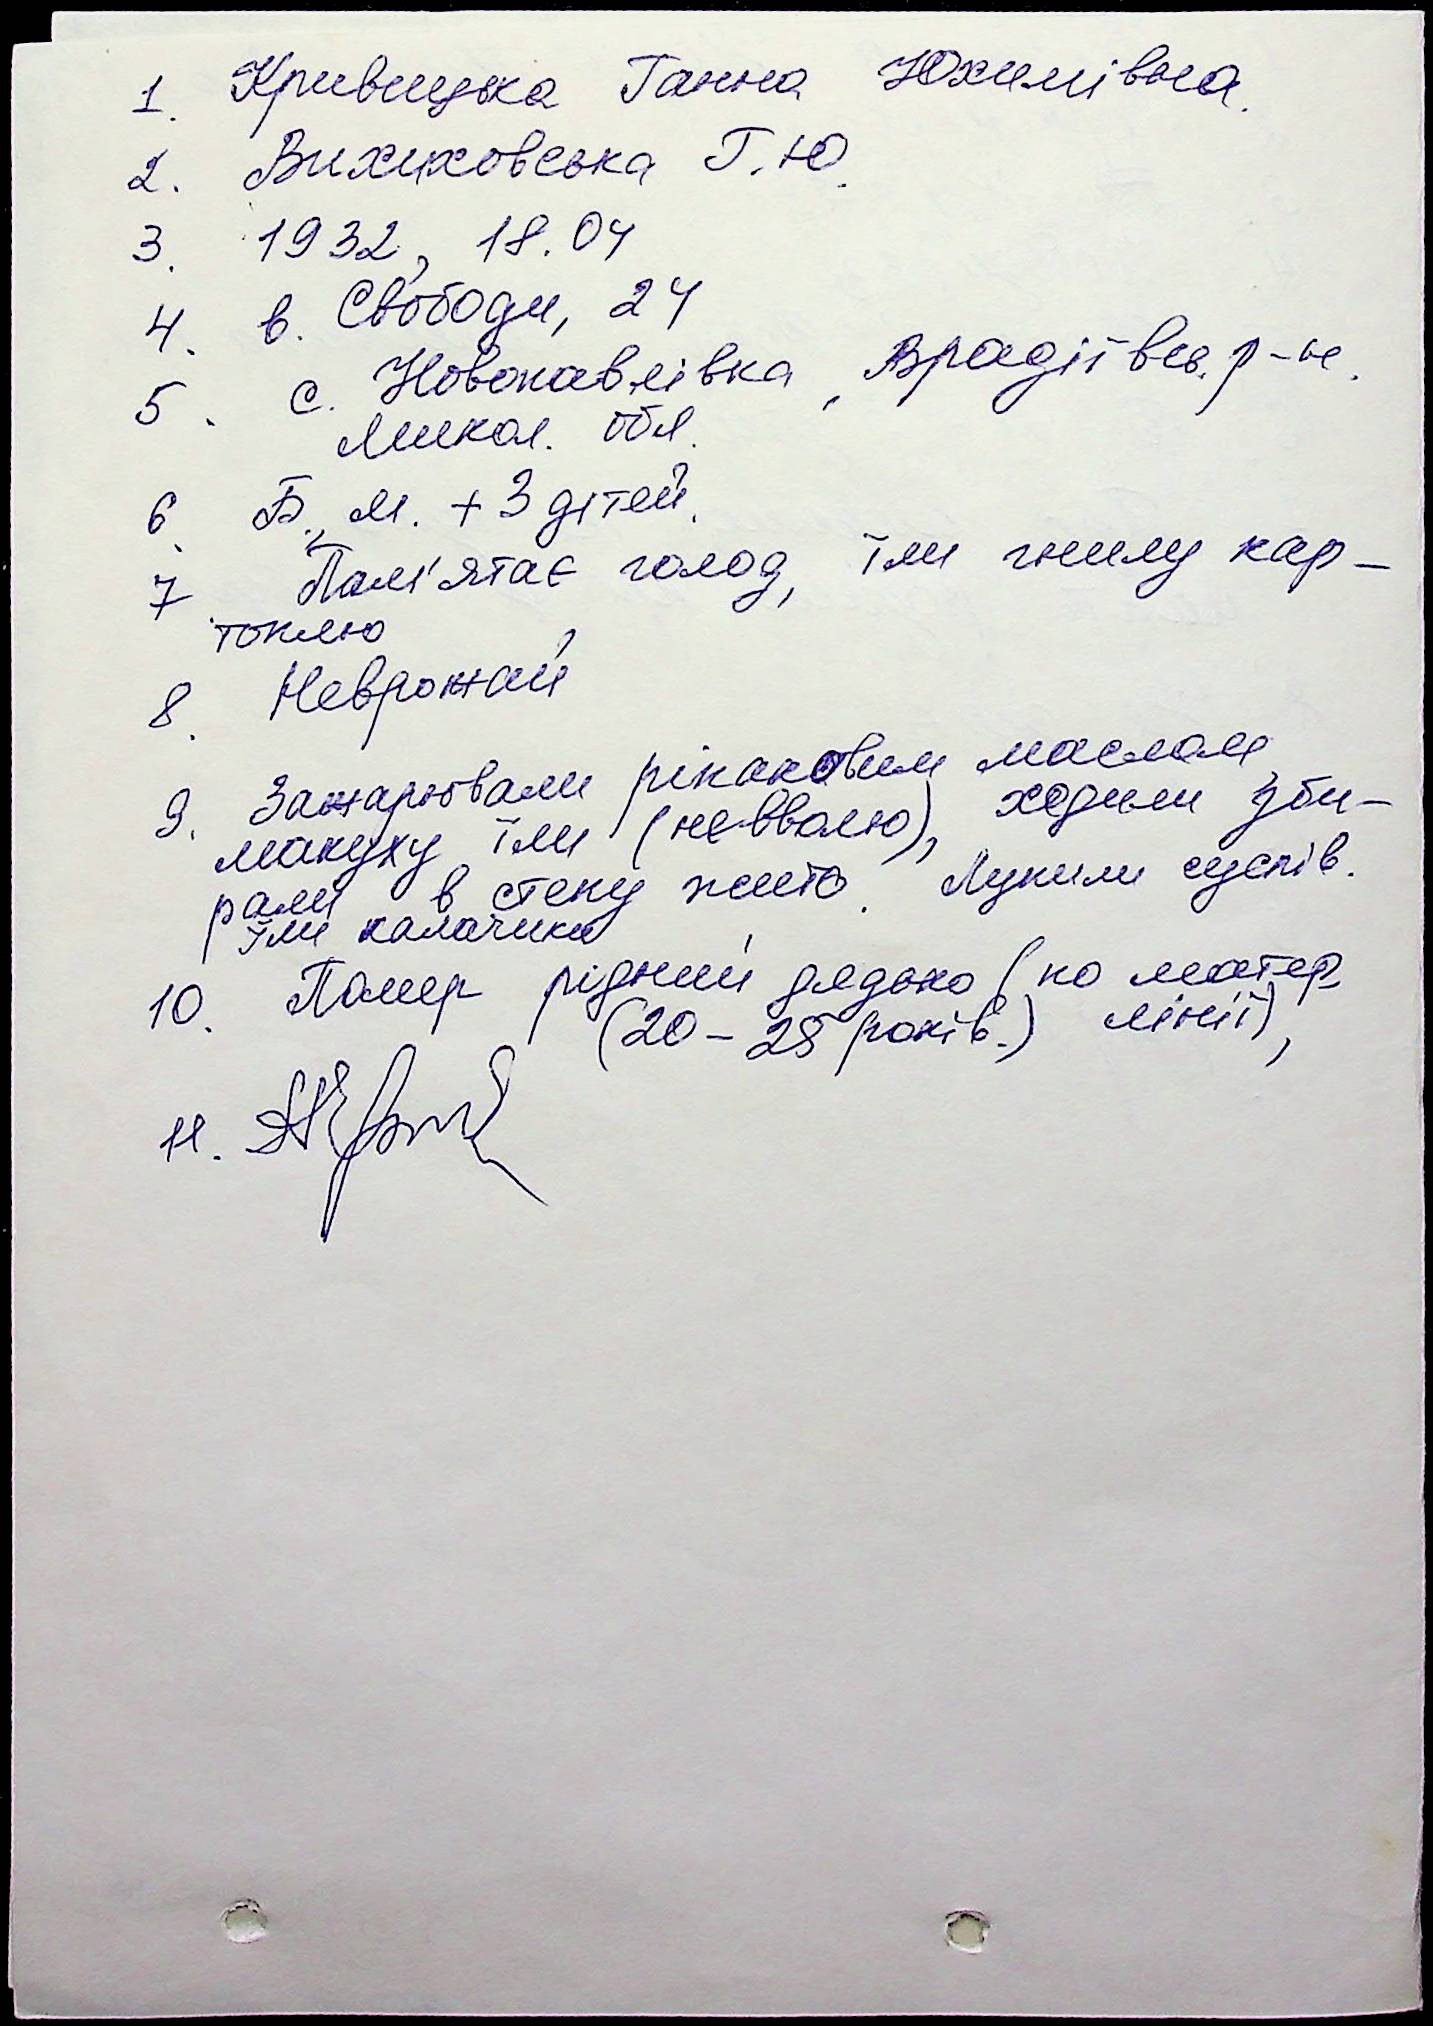 1. Кривицька Ганна Юхимівна.
2. Г. Ю.
3. 1932, 18.04
4. в. Свободи, 24
5. с. Новопавлівка, Врадіївсь. р-н.
Микол. обл.
6. Б., М. + 3 дітей.
7 Пам'ятає голод, їли гнилу кар-
топлю
8. Неврожай
9. Зажарювали ріпаковим маслом,
макуху їли (невволю), ходили зби-
рали в степу жито. Лупили суслів.
їли калачики
10. Помер рідний дядько (по матер.
(20-25 років.) лінії),
11.